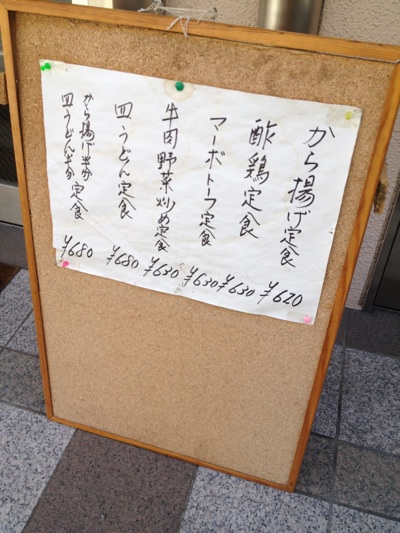 から揚げ定食 ¥620
酢鶏定食 ¥630
マーボトーフ定食 ¥630
牛肉野菜炒め定食 ¥630
皿うどん定食 ¥680
から揚げ半分
皿うどん半分 定食 ¥680